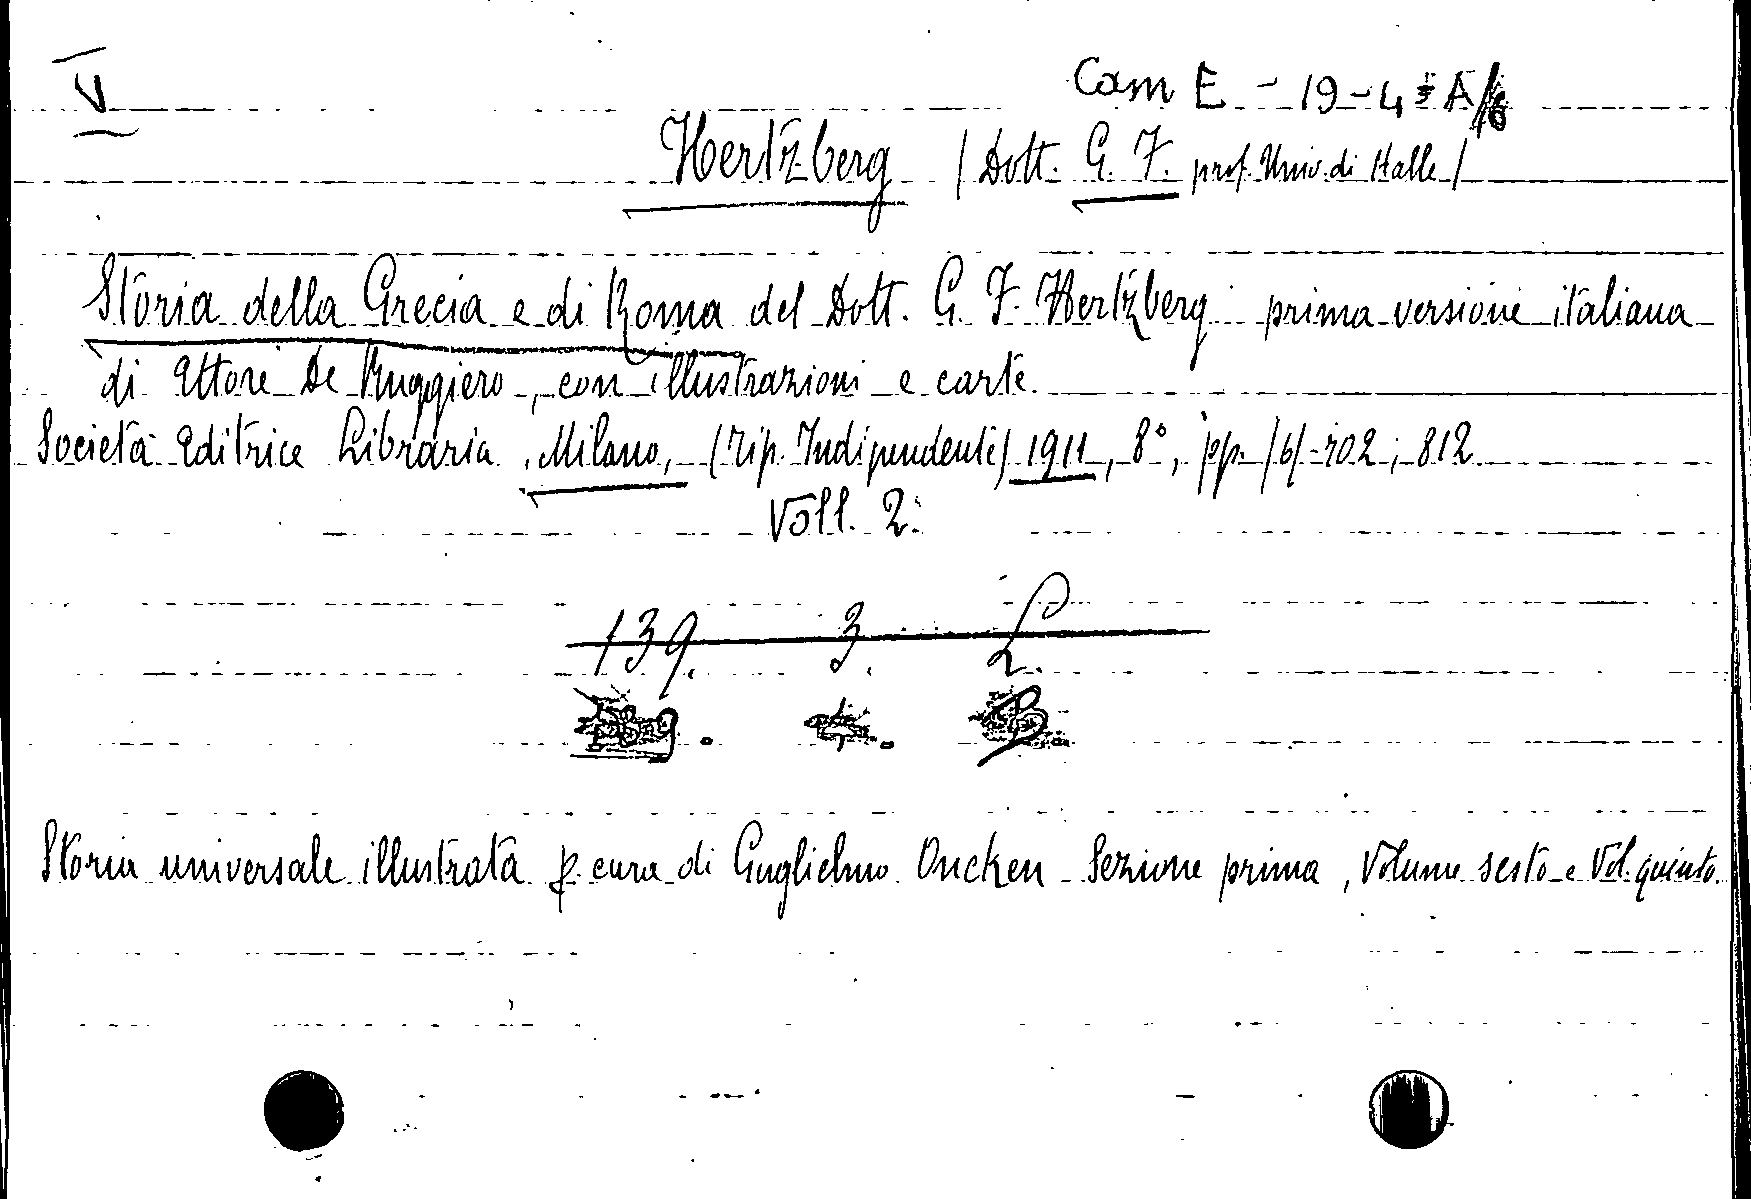 V
Cam E - 19 - 4 - A/
Hertzberg (Dott. G. F. prof. Univ. di Halle)
Storia della Grecia e di Roma del Dott. G. F. Hertzberg prima versione italiana
di Ettore De Ruggiero, con illustrazioni e carte.
Società Editrice Libraria, Milano, (Tip. Indipendenti) 1911, 8°, pp. /6/-702; 812
Voll. 2.
139. 3. L.
Storia universale illustrata p. cura di Guglielmo Oncken Sezione prima, Volume sesto e Vol. quinto.